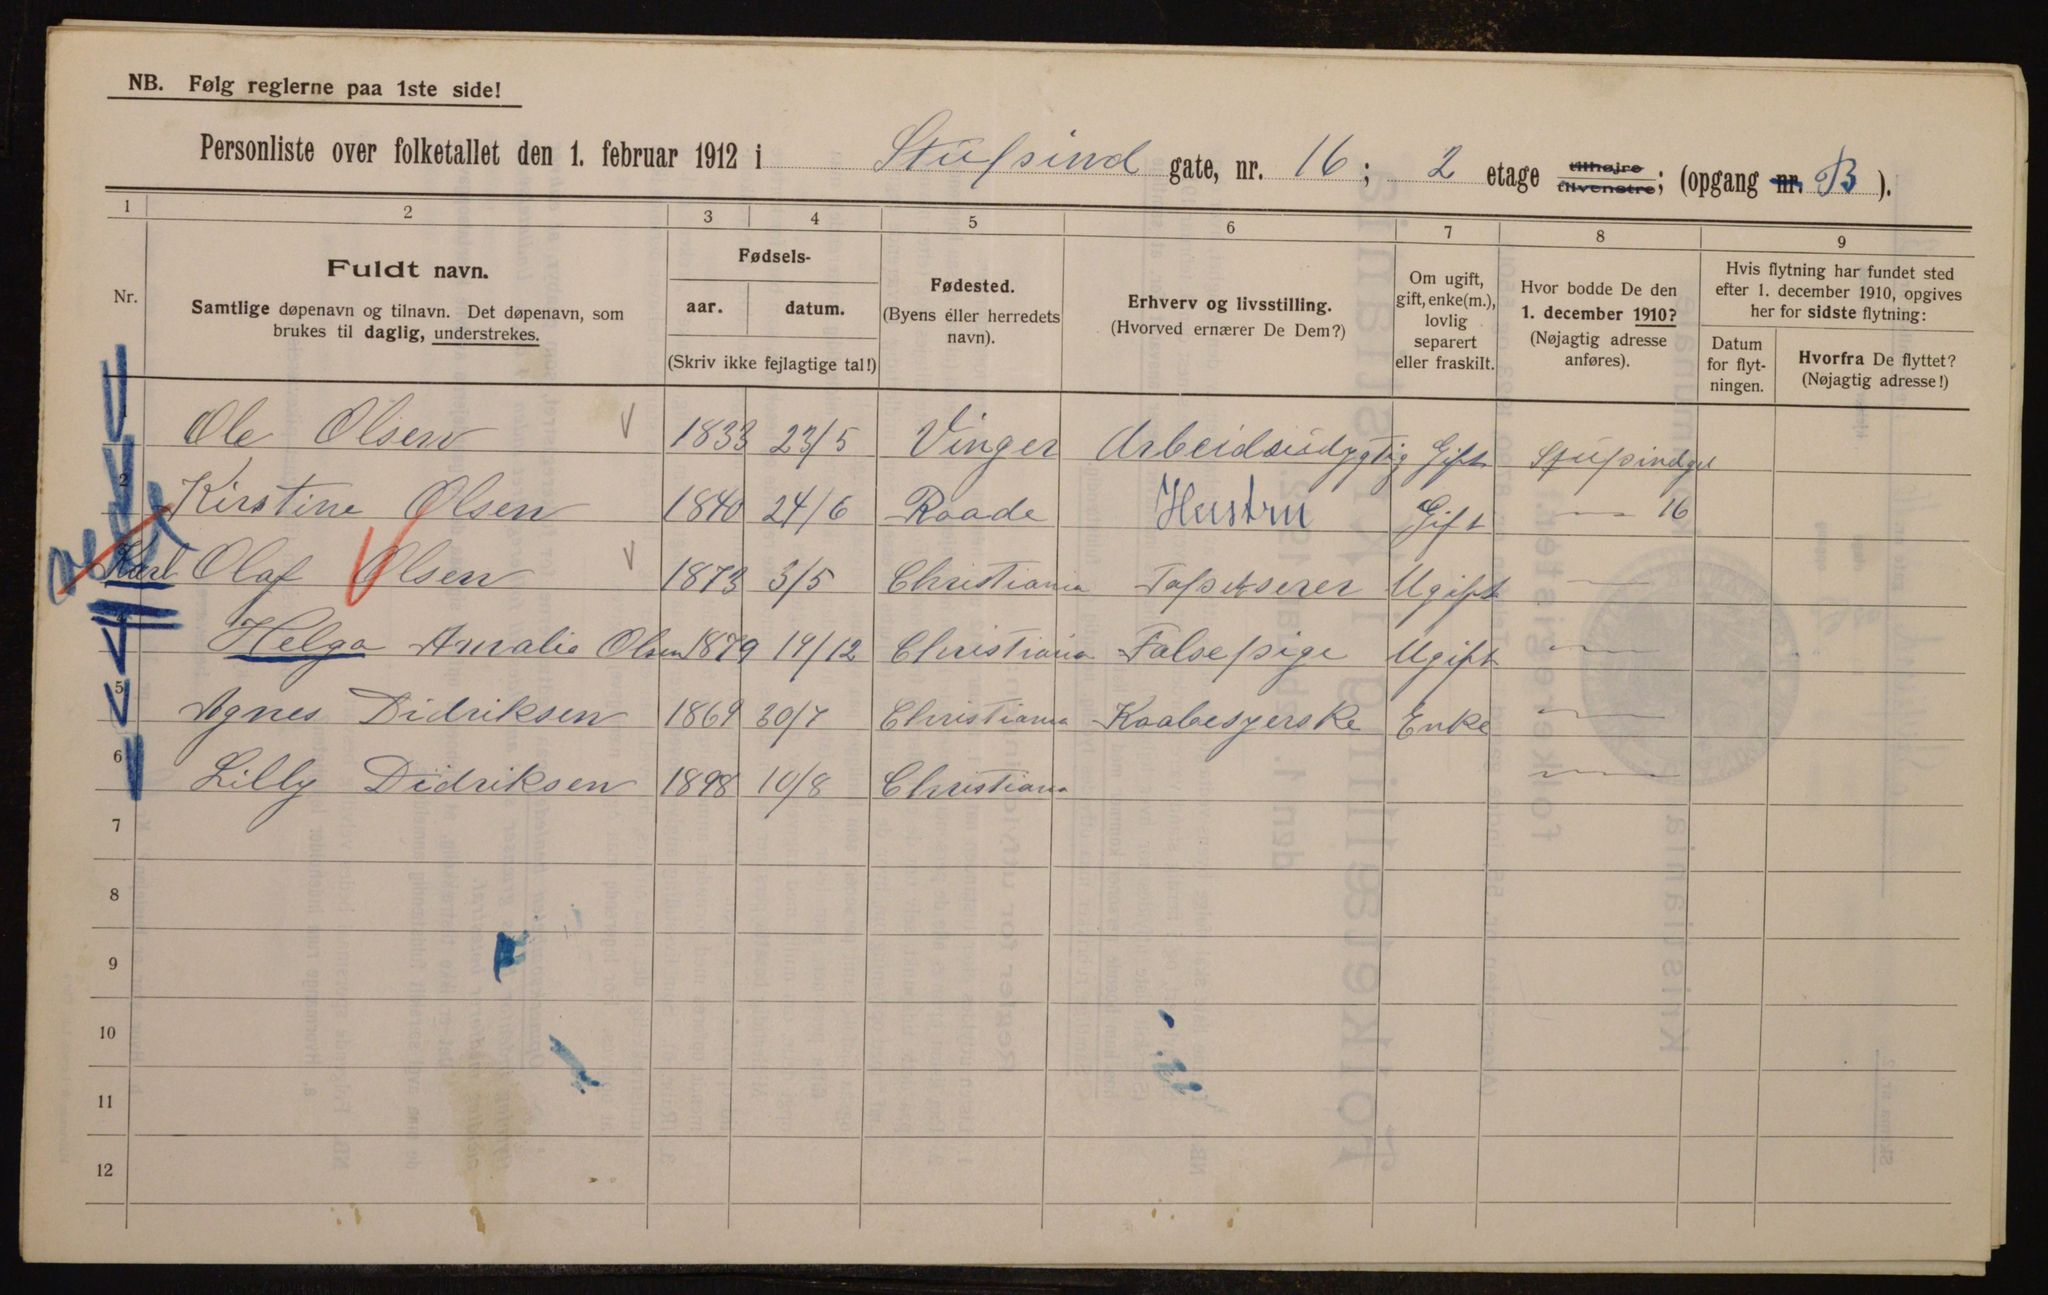 NB. Følg reglerne paa 1ste side!
Personliste over folketallet den 1. februar 1912 i Stupind gate, nr. 16; 2 etage tilhøjre tilvenstre; (opgang nr. B ).
1 2 3 4 5 6 7 8 9
Nr.
Fuldt navn.
Samtlige døpenavn og tilnavn. Det døpenavn, som
brukes til daglig, understrekes.
Fødsels-
aar. datum.
(Skriv ikke fejlagtige tal!)
Fødested.
(Byens eller herredets
navn).
Erhverv og livsstilling.
(Hvorved ernærer De Dem?)
Om ugift,
gift, enke(m.),
lovlig
separert
eller fraskilt.
Hvor bodde De den
1. december 1910?
(Nøjagtig adresse
anføres).
Hvis flytning har fundet sted
efter 1. december 1910, opgives
her for sidste flytning:
Datum
for flyt-
ningen.
Hvorfra De flyttet?
(Nøjagtig adresse!)
1 Ole Olsen 1833 23/5 Vinger Arbeidsudygtig Gift Stupindgt
2 Kirstine Olsen 1840 24/6 Raade Hustru Gift — 16
Karl Olaf Olsen 1873 3/5 Christiania Tapetserer Ugift —
Helga Amalie Olsen 1879 19/12 Christiania Falsepige Ugift —
5 Agnes Didriksen 1869 30/7 Christiania Kaabesyerske Enke —
6 Lilly Didriksen 1898 10/8 Christiania —
7
8
9
10
11
12